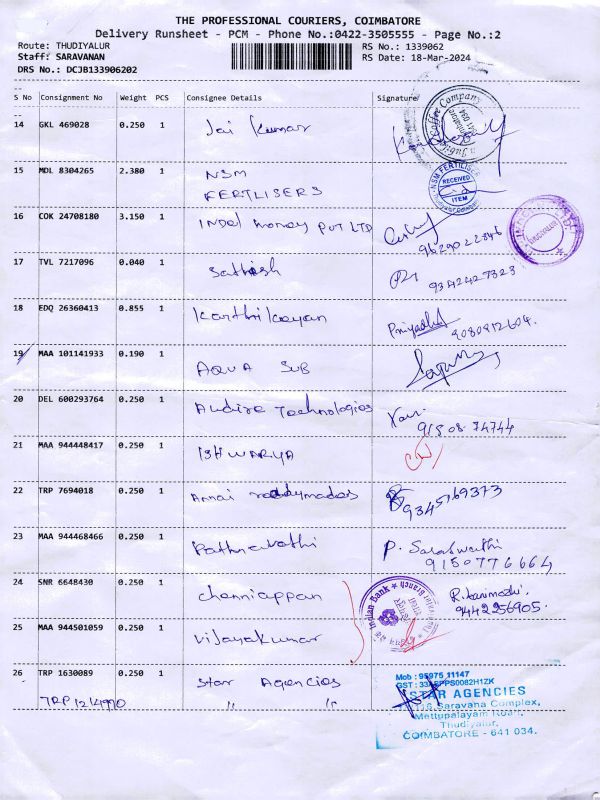 THE PROFESSIONAL COURIERS, COIMBATORE
Delivery Runsheet - PCM - Phone No.:0422-3505555 - Page No.:2
Route: THUDIYALUR RS No.: 1339062
Staff: SARAVANAN RS Date: 18-Mar-2024
DRS No.: DCJB133906202
S No Consignment No Weight PCS Consignee Details Signature/
14 GKL 469028 0.250 1 Jai Kumar
15 MDL 8304265 2.380 1 NSM
FERTLISERS
NSM FERTILISER
RECEIVED
ITEM
16 COK 24708180 3.150 1 INDEL money PVT LTD
9629022846
17 TVL 7217096 0.040 1 Sathish
9342427323
18 EDQ 26360413 0.855 1 Karthikayan
19 MAA 101141933 0.190 1 AQUA SUB
20 DEL 600293764 0.250 1 Technologies
91508 74744
21 MAA 944448417 0.250 1 ISHWARYA
22 TRP 7694018 0.250 1 Annai readymades
9345769373
23 MAA 944468466 0.250 1
P. Saraswathi
9150776664
24 SNR 6648430 0.250 1 Chenniappan
Indian Bank
9442256905.
25 MAA 944501059 0.250 1 Vijayakumar
26 TRP 1630089 0.250 1 Star Agencies
Mob : 95975 11147
STAR AGENCIES
Saravana Complex,
Mettupalayam Road,
Thudiyalur,
COIMBATORE - 641 034.